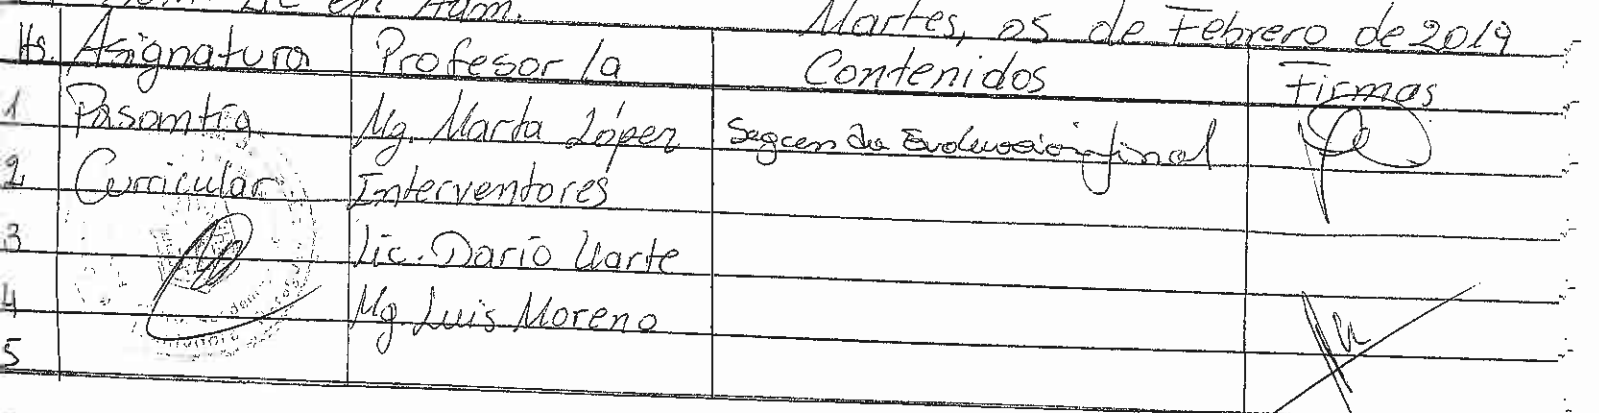 Lic en Adm.
Martes, 05 de Febrero de 2019
Hs. Asignatura Profesor/a Contenidos Firmas
1 Pasantía Mg. Marta López Segunda Evaluación final
2 Curricular Interventores
3 Lic. Darío Uarte
4 Mg. Luis Moreno
5